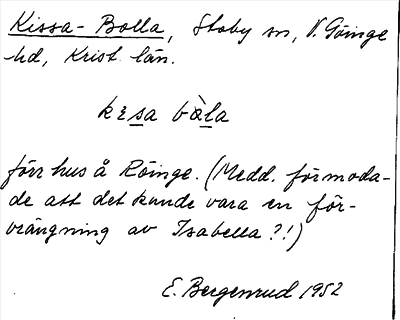 Kissa-Bolla, Stoby sn, V. Göinge
hd, Krist. län.
kɪsa bὰla
förr hus å Röinge. (Medd. förmoda-
de att det kunde vara en för-
vrängning av Isabella?!)
E. Bergenrud 1952